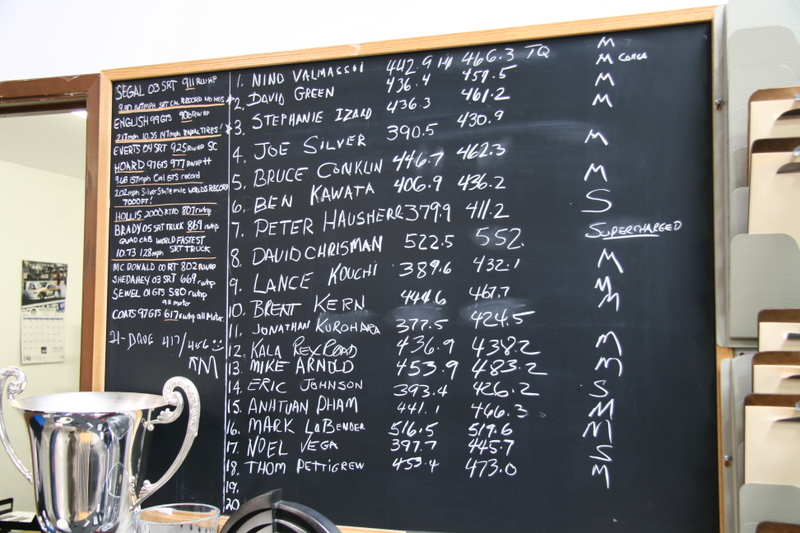 SEGAL 03 SRT 911 RWHP
ENGLISH 99 GTS 906 RWHP
217mph 10.35 147mph RADIAL TIRES!
EVERTS 04 SRT 925 RWHP SC
HOARD 97 GTS 977 RWHP
9.68 157mph Cal GTS record
202mph Silver State mile WORLDS RECORD
7000FT!
HOLLIS 2000 RT/10 807 rwhp
BRADY 05 SRT TRUCK 869 rwhp
QUAD CAB WORLD FASTEST
10.73 128mph SRT TRUCK
MC DONALD 00 RT 802 RWHP
SHEDAHEY 03 SRT 669 rwhp
SEWEL 01 GTS 580 rwhp
all motor
COATS 97 GTS 617 rwhp all Motor
417/456
M
1. NINO VALMASSOI 442.9 HP 466.3 TQ M
2. DAVID GREEN 436.4 459.5 M
3. STEPHANIE IZARD 436.3 461.2 M
4. JOE SILVER 390.5 430.9
5. BRUCE CONKLIN 446.7 462.3 M
6. BEN KAWATA 406.9 436.2 M
7. PETER HAUSHERR 379.9 411.2 S
8. DAVID CHRISMAN 522.5 552. SUPERCHARGED
9. LANCE KOUCHI 389.6 432.1 M
10. BRENT KERN 444.6 467.7 M
11. JONATHAN KUROHARA 377.5 424.5 M
12. KALA REXROAD 436.9 438.2 M
13. MIKE ARNOLD 453.9 483.2 M
14. ERIC JOHNSON 393.4 426.2 S
15. ANHTUAN PHAM 441.1 466.3 M
16. MARK LaBENDER 516.5 519.6 M
17. NOEL VEGA 397.7 445.7 S
18. THOM PETTIGREW 453.4 473.0 M
19.
20